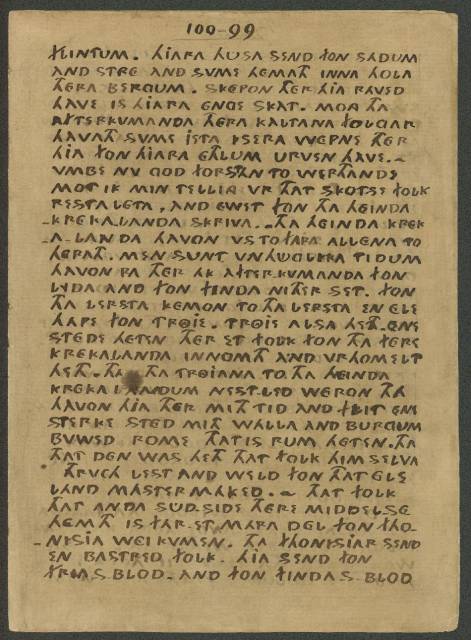 FLINTUM. HIARA HUSA SEND FON SADUM
AND STRE AND SUME HEMATH INNA HOLA
THERA BERGUM. SKEPON THER HIA RAVED
HAVE IS HIARA ENGE SKAT. MONG THA
AFTERKUMANDA THERA KALTANA FOLGAR
HAVATH SUME IETA YSERA WEPNE THER
HIA FON HIARA ETHLUM URVEN HAVE.~
VMBE NV GOD FORSTAN TO WERTHANDE
MOT IK MIN TELLING VR THAT SKOTSE FOLK
RESTA LETA, AND EWET FON THA HEINDA
KREKALANDA SKRIVA._THA HEINDA KREK
A-LANDA HAVON US TO FARA ALLENA TO
HERATH. MEN SUNT UNHUGLIKA TIDUM
HAVON RA THER AK AFTERKUMANDA FON
LYDA AND FON FINDA NITHER SET. FON
THA LERSTA KEMON TO THA LERSTA EN ELE
HAPE FON TROIE. TROIE ALSA HETH ENE
STEDE HETEN THER ET FOLK FON THA FERE
KREKALANDA INNOMTH AND VRHOMELT
HETH. THA THA TROIANA TO THA HEINDA
KREKALANDUM NESTLED WERON THA
HAVON HIA THER MITH TID AND FLIT ENE
STERKE STED MITH WALLA AND BURGUM
BVWED ROME THAT IS RUM HETEN. THA
THAT DEN WAS HETH THAT FOLK HIM SELVA
THRVCH LEST AND WELD FON THAT ELE
LAND MASTER MAKED.~ THAT FOLK
THAT ANDA SUDSIDE THERE MIDDELSE
HEMTH IS FAR ET MARA DEL FON FHO-
NISIA WEI KVMEN. THA FHONISIAR SEND
EN BASTRED FOLK. HIA SEND FON
FRYAS BLOD. AND FON FINDAS BLOD